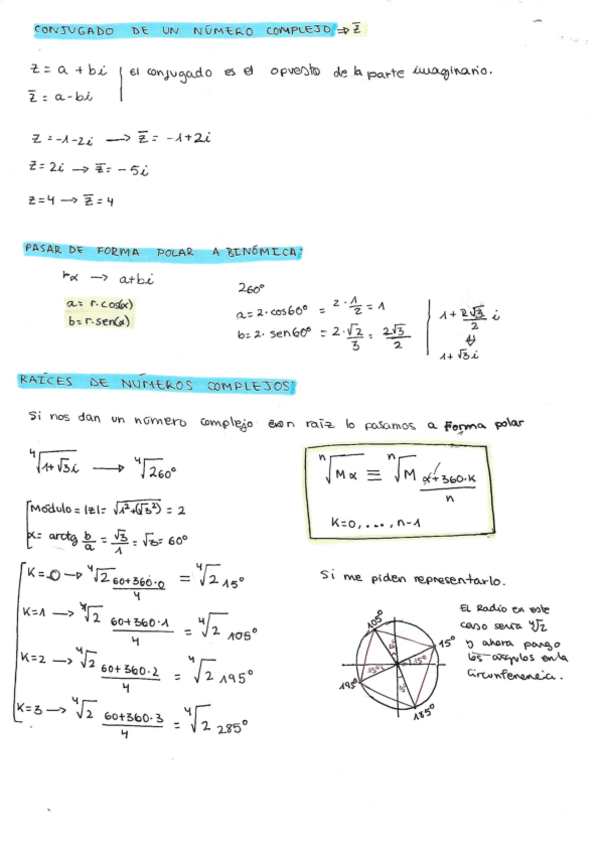 CONJUGADO DE UN NÚMERO COMPLEJO ⇒ z̄
z = a + bi | El conjugado es el opuesto de la parte imaginario.
z̄ = a-bi
z = -1-2i → z̄ = -1+2i
z = 2i → z̄ = -5i
z=4 → z̄ = 4
PASAR DE FORMA POLAR A BINÓMICA:
rα → a+bi
a = r·cos(α)
b = r·sen(α)
2 60º
a = 2·cos60º = 2·1/2 = 1
b = 2·sen60º = 2·√2/3 = 2√3/2
1 + 2√3/2 i
⇔
1+√3i
RAÍCES DE NÚMEROS COMPLEJOS:
Si nos dan un número complejo con raíz lo pasamos a forma polar
⁴√1+√3i → ⁴√2 60º
Módulo = |z| = √1²+(√3²) = 2
α = arctg b/a = √3/1 = √3 = 60º
ⁿ√Mα ≡ ⁿ√M α+360·K/n
K=0,...,n-1
K=0 → ⁴√2 60+360·0/4 = ⁴√2 15º
K=1 → ⁴√2 60+360·1/4 = ⁴√2 105º
K=2 → ⁴√2 60+360·2/4 = ⁴√2 195º
K=3 → ⁴√2 60+360·3/4 = ⁴√2 285º
Si me piden representarlo.
105º
15º
195º
185º
15º
15º
El Radio en este
caso sería ⁴√2
y ahora pongo
los ángulos en la
Circunferencia.